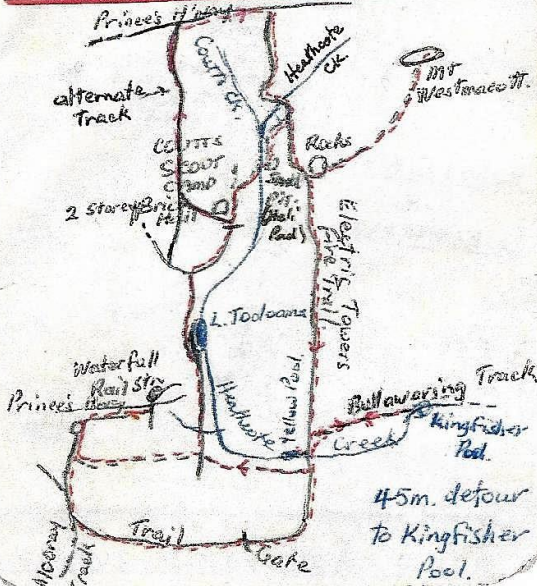 Prince's H'way
Coutts Ck.
Heathcote
Ck.
Mt
Westmacott.
alternate
Track
Rocks
COUTTS
SCOUT
CAMP
2 Storey Brick
Pit.
(Heli
Pad)
Electric Towers
Fire Trail.
L. Toolooma
Waterfall
Rail Stn
Prince's
Heathcote
Yellow Pool.
Bullawarring Track
Creek
Kingfisher
Pool.
45m. detour
to Kingfisher
Pool.
Trail
Gate
Track